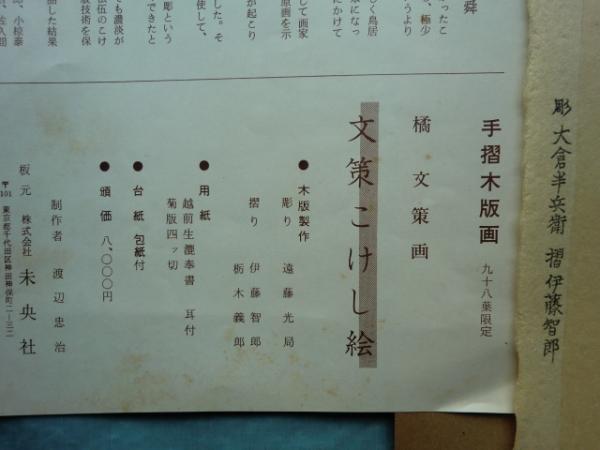 彫 大倉半兵衛 摺 伊藤智郎
手摺木版画 九十八葉限定
橘 文策画
文策こけし絵
● 木版製作
彫り 遠藤光局
摺り 伊藤智郎
栃木義郎
● 用紙
越前生漉奉書 耳付
菊版四ッ切
● 台紙 包紙付
● 頒価 八、〇〇〇円
制作者 渡辺忠治
板元 株式会社 未央社
〒101 東京都千代田区神田神保町二ー三二
舜
ったこ
、極少
うより
しく鳥居
になっ
にかけて
して画家
原画を示
が起こり
した。そ
使して、
彫という
できたと
も濃淡が
伍のこけ
技術を保
した結果
、小椋泰
、佐久間